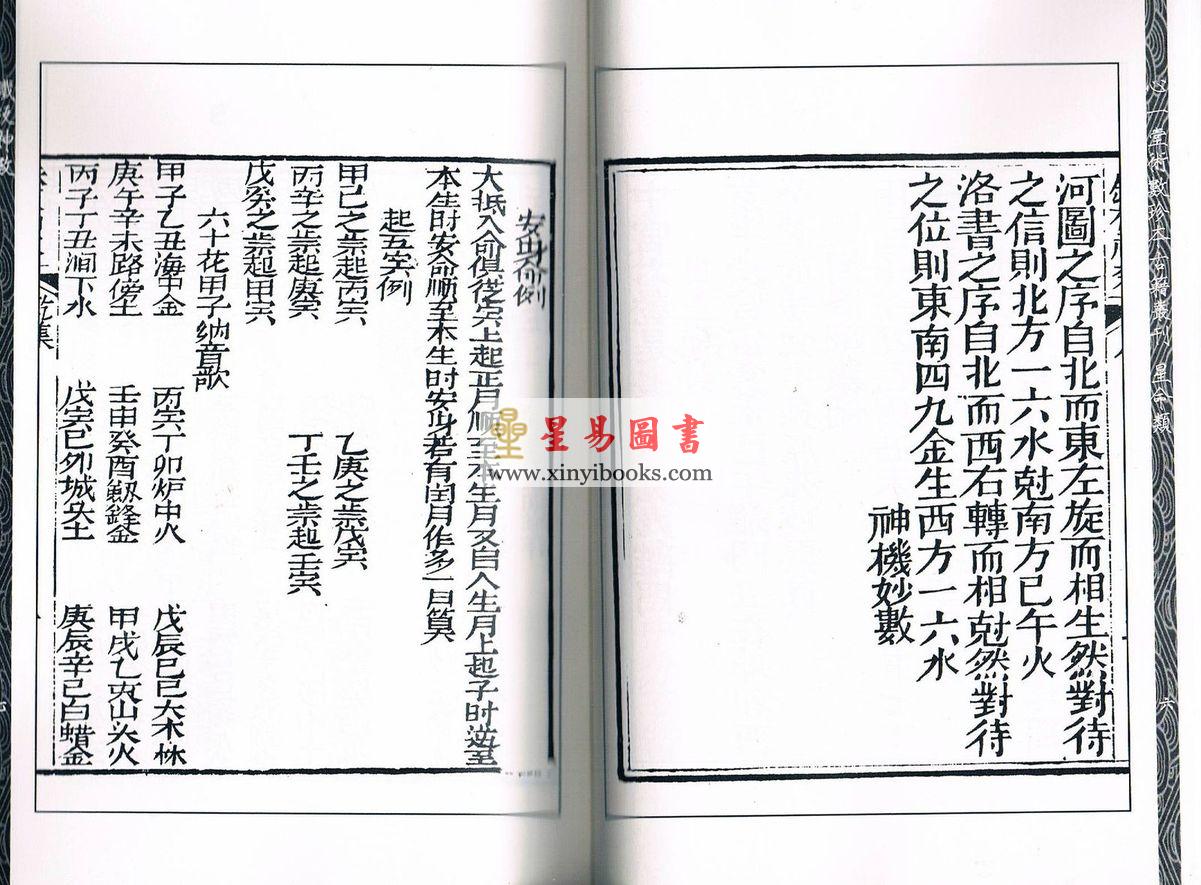 心一堂術數珍本古籍叢刊 星命類
六
河圖之序自北而東左旋而相生然對待
之信則北方一六水尅南方巳午火
洛書之序自北而西右轉而相尅然對待
之位則東南四九金生西方一六水
神機妙數
安身命例
大抵入命俱從寅上起正月順至本生月又自人生月上起子時逆至
本生時安命順至本生時安身若有閏月作多一月算
起五寅例
甲己之歲起丙寅
乙庚之歲起戊寅
丙辛之歲起庚寅
丁壬之歲起壬寅
戊癸之歲起甲寅
六十花甲子納音歌
甲子乙丑海中金
丙寅丁卯炉中火
戊辰巳巳大木林
庚午辛未路傍土
壬申癸酉劔鋒金
甲戌乙亥山头火
丙子丁丑澗下水
戊寅巳卯城头土
庚辰辛巳白蜡金
乾集
星易圖書
www.xinyibooks.com